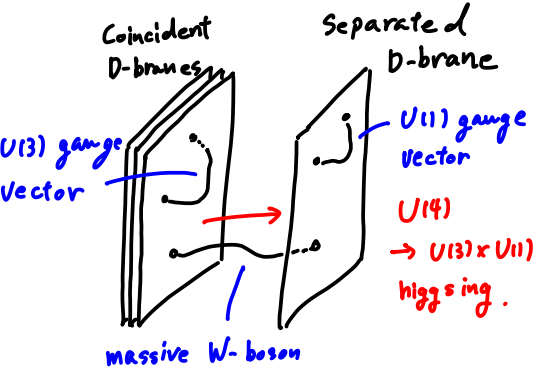 Coincident
D-branes
Separated
D-brane
U(3) gauge
vector
U(1) gauge
vector
U(4)
→ U(3) × U(1)
higgsing.
massive W-boson